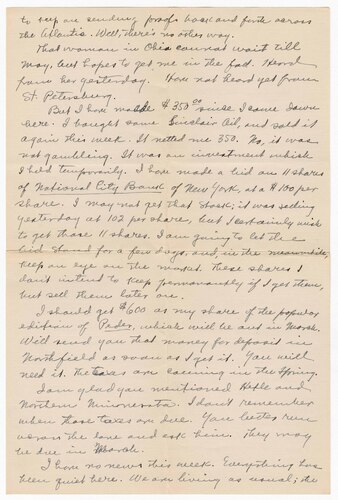 to keep on sending proofs back and forth across
the Atlantic. Well, there's no other way.
That woman in Ohio cannot wait till
May, but hopes to get me in the fall. Heard
from her yesterday. Have not heard yet from
St. Petersburg.
But I have made $350.00 since I came down
here. I bought some Sinclair Oil, and sold it
again this week. It netted me 350. No, it was
not gambling. It was an investment which
I held temporarily. I have made a bid on 11 shares
of National City Bank of New York, at a $100 per
share. I may not get that stock; it was selling
yesterday at 102 per share, but I certainly wish
to get those 11 shares. I am going to let the
bid stand for a few days, and, in the meanwhile,
keep an eye on the market. These shares I
don't intend to keep permanently if I get them,
but sell them later on.
I should get $600 as my share of the popular
edition of Peder, which will be out in March.
Will send you that money for deposit in
Northfield as soon as I get it. You will
need it. The taxes are coming in the spring.
I am glad you mentioned and
Northern Minnesota. I don't remember
when those taxes are due. You better run
across the and ask him. They may
be due in March.
I have no news this week. Everything has
been quiet here. We are living as usual; the